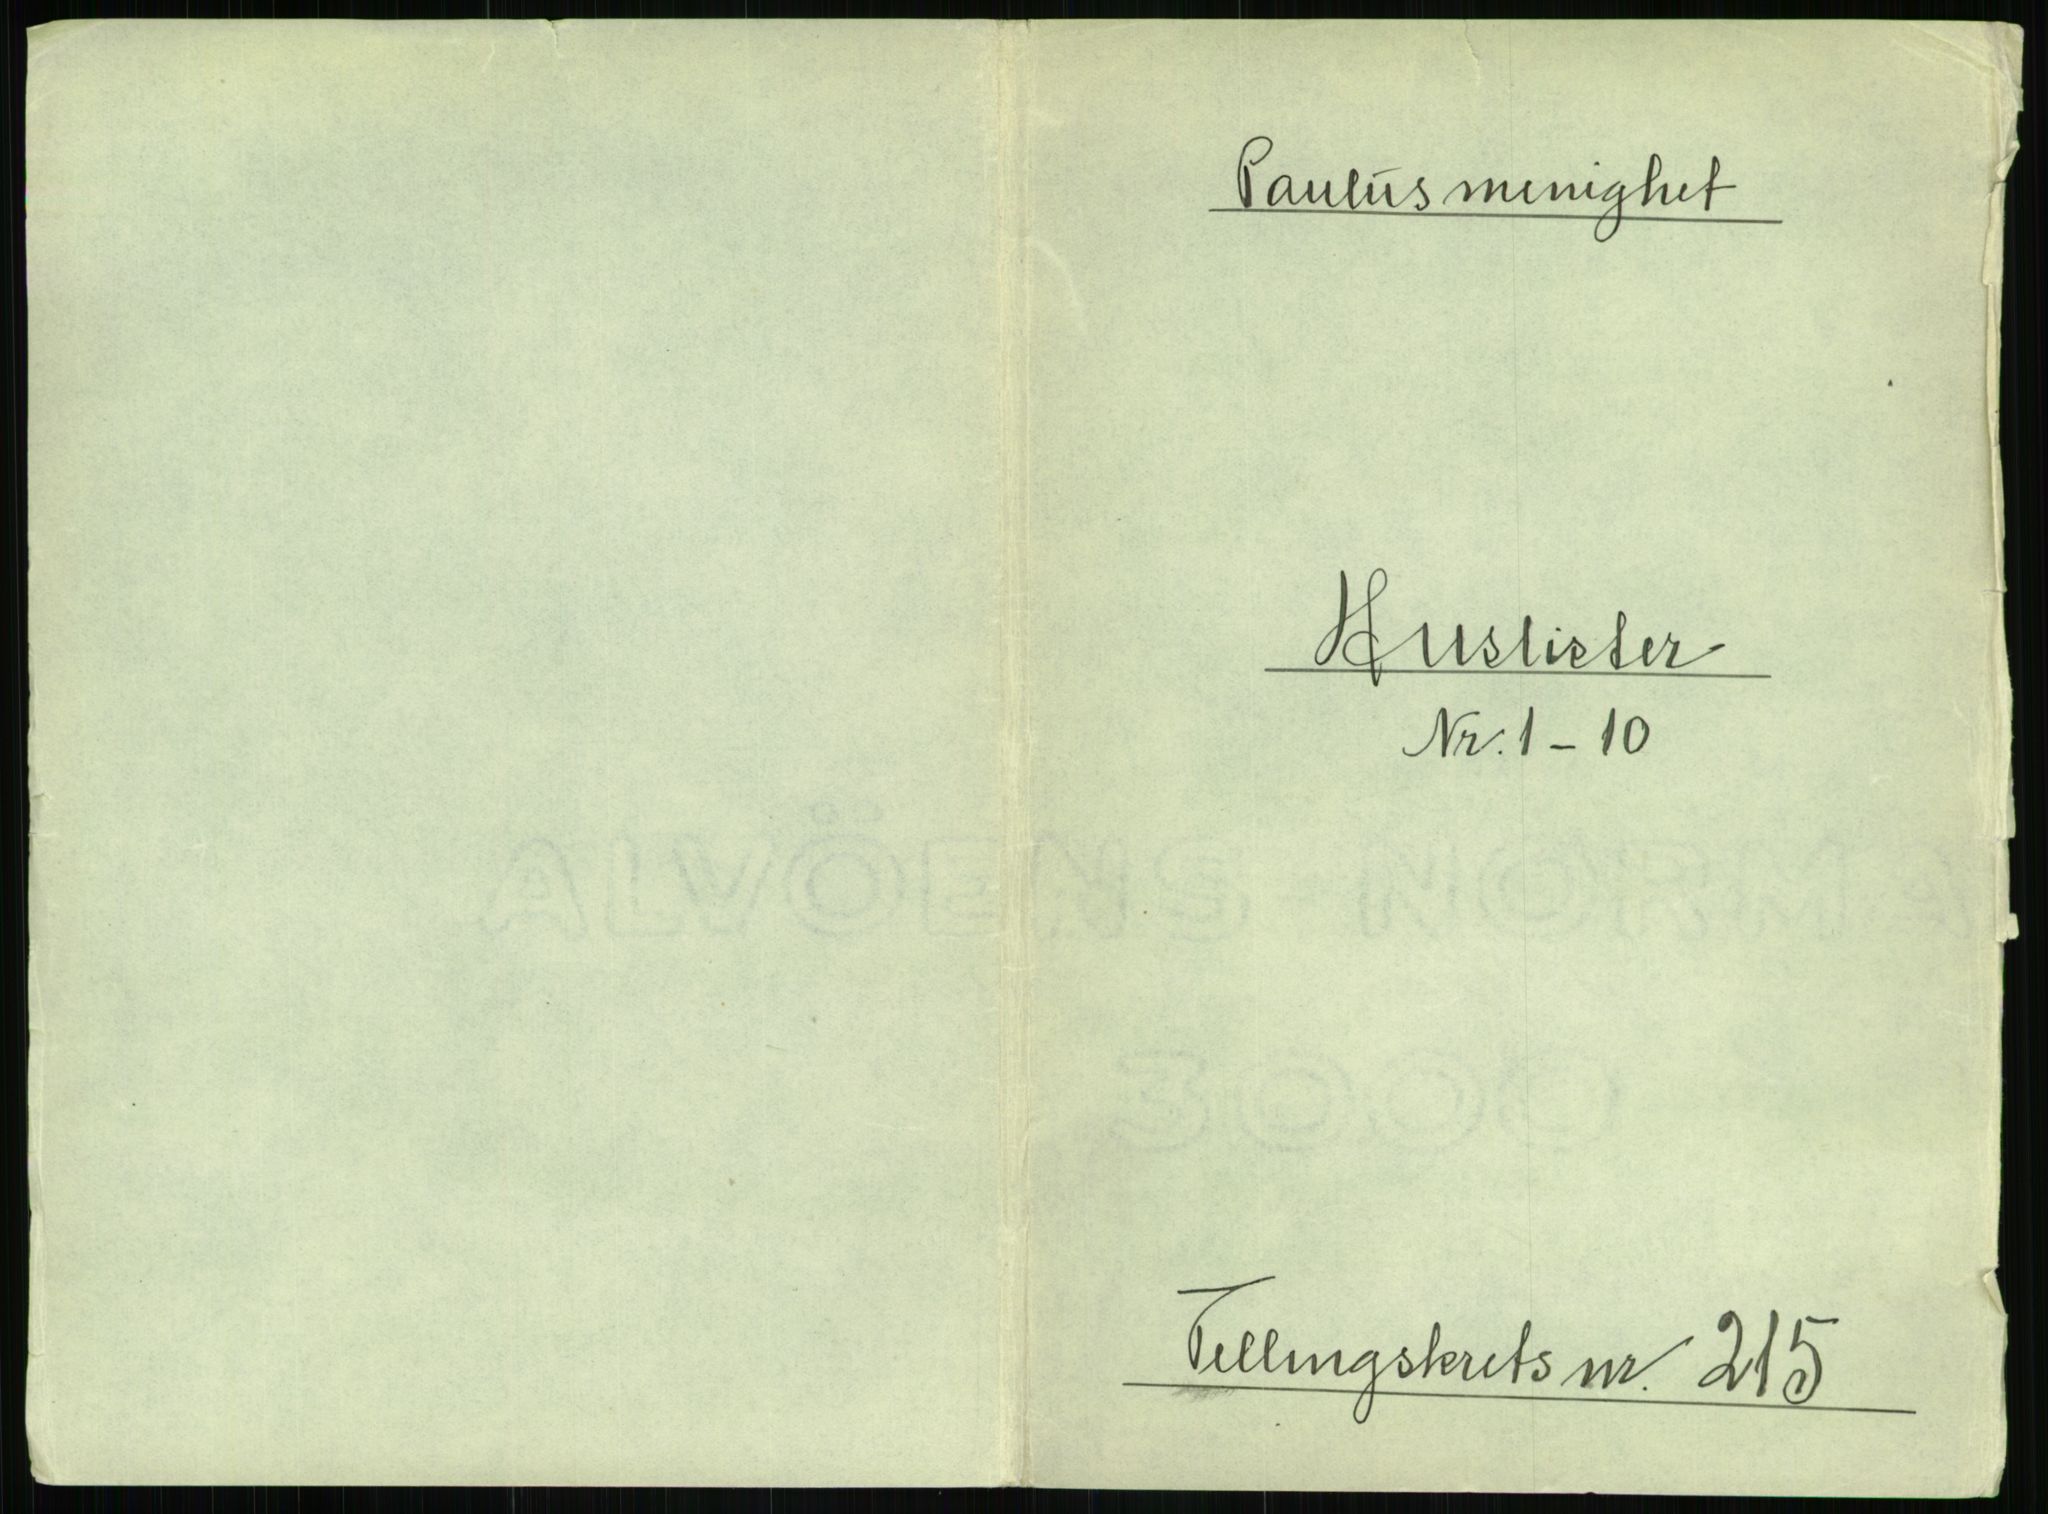 Paulus menighet
Huslister
Nr. 1 - 10
ALVÖENS NORMA
3000
Tellingskrets nr. 215